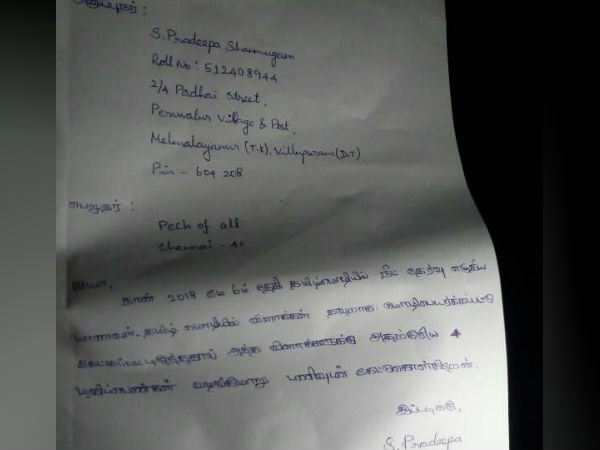 அனுப்புநர் :
S. Pradeepa Shanmugam
Roll No : 512408944
2/4 Padhai Street,
Peruvalur Village & Post,
Melmalayanur (T.k), Villupuram (D.T)
Pin - 604 208
பெறுநர் :
Pech of all
Chennai - 41
ஐயா,
நான் 2018 மே 6ம் தேதி தமிழ்மொழியில் நீட் தேர்வு எழுதிய
மாணவர். தமிழ் மொழியில் வினாக்கள் தவறாக மொழிபெயர்க்கப்பட்டு
கேட்கப்பட்டிருந்ததால் அந்த வினாக்களுக்கு அதற்குரிய 4
மதிப்பெண்கள் வழங்கிமாறு பணிவுடன் கேட்டுகொள்கிறேன்.
இப்படிக்கு,
S. Pradeepa